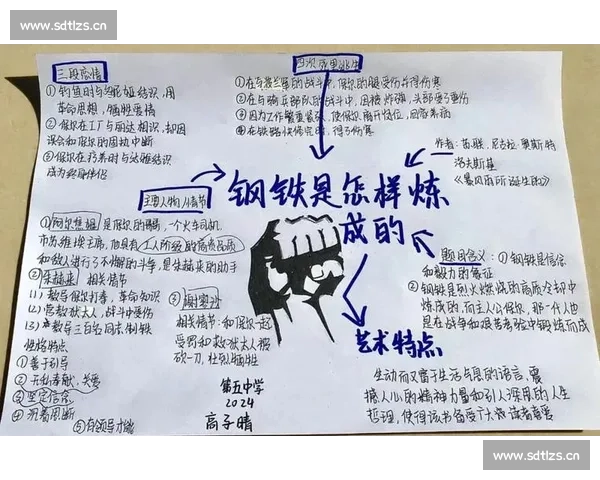 www.sdtlzs.cn
三段感情
①钓鱼时与冬妮娅结识,因
革命思想,牺牲爱情
②保尔在工厂与丽达相识,却因
误会和保尔的固执中断
③保尔在疗养时与达雅结识
成为终身伴侣
四次死里逃生
①在争夺 的战斗中,保尔的腿受伤并得伤寒
②在与骑兵部队的战斗中,因被炸弹,头部受了重伤
③因为工作繁重 ,使保尔离开岗位,回家养病
④在铁路快修完时,得了伤寒
作者:苏联,尼古拉·奥斯特
洛夫斯基
《暴风雨所诞生的》
钢铁是怎样炼
成的
主要人物/情节
①阿尔焦姆 是保尔的哥哥,一个火车司机
市苏维埃主席,他具有工人阶级的高贵品质
和敌人进行了不懈的斗争,是朱赫来的助手
②朱赫来 相关情节
(1)教导保尔打拳,革命知识
(2)营救犹太人,战斗中受伤
(3) 教导三百名同志制铁
性格特点
①善于引导
②无私奉献,关爱
③坚定信念
④沉着果断
⑤有领导才能
③谢廖沙
相关情节:和保尔一起
受罚和救犹太人被
砍一刀,壮烈牺牲
第五中学
2024
高子晴
题目含义:①钢铁是信念
和毅力的象征
②钢铁是烈火燃烧的高度冷却中
炼成的,而主人公保尔,那一代人也
是在战争和艰苦考验中钢炼而成
艺术特点
生动而又富于生活气息的语言,震
撼人心的精神力量和引人深思的人生
哲理,使得该书备受广大 读者喜爱
www.sdtlzs.cn